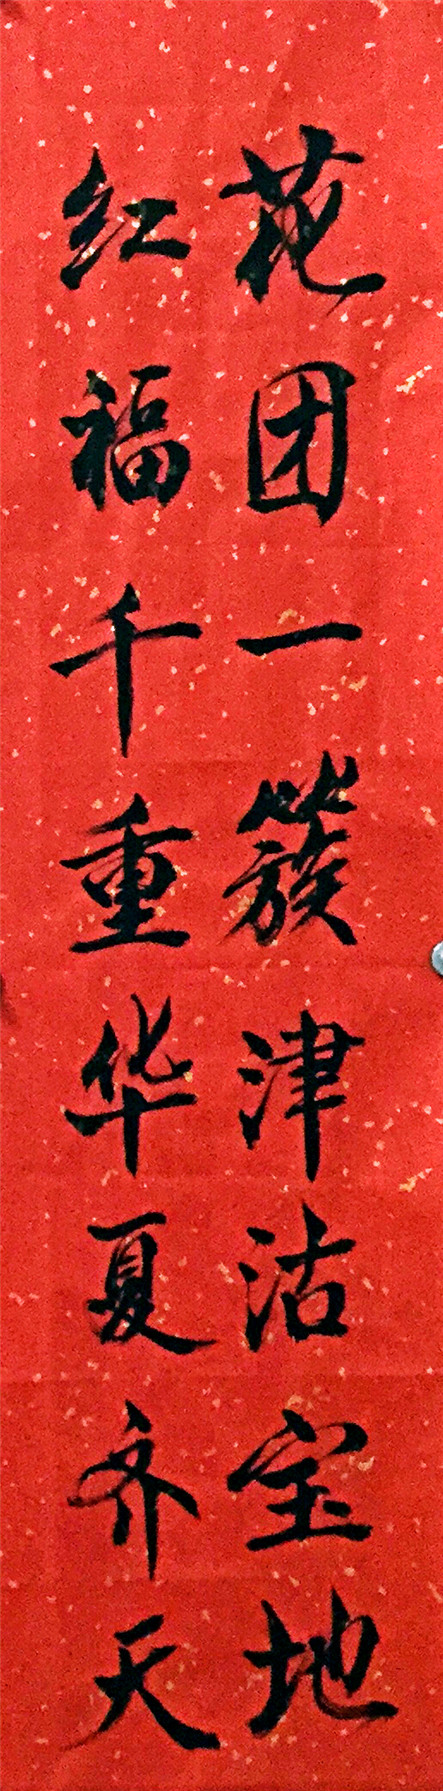 花团一簇津沽宝地
红福千重华夏齐天